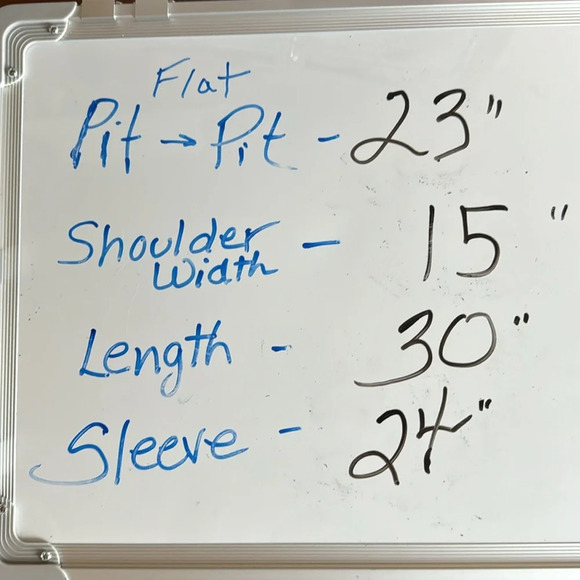 Flat
Pit → Pit - 23"
Shoulder
Width - 15"
Length - 30"
Sleeve - 24"